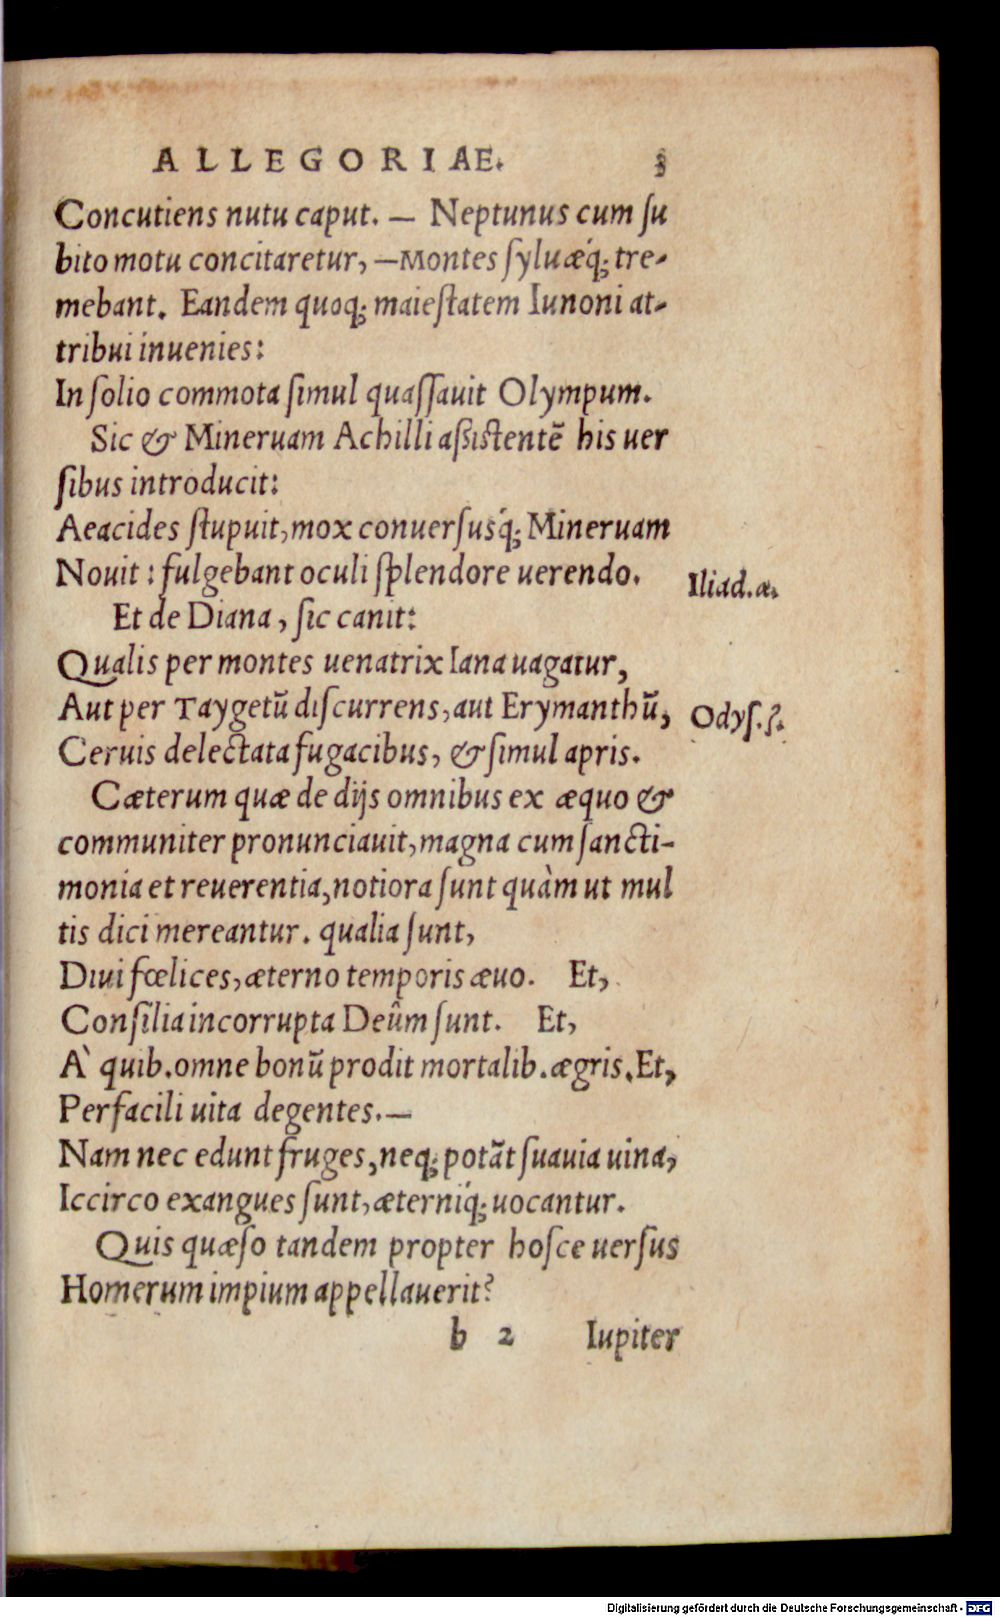 ALLEGORIAE. 3
Concutiens nutu caput. — Neptunus cum su
bito motu concitaretur, —Montes syluæq́; tre-
mebant. Eandem quoq; maiestatem Iunoni at-
tribui inuenies:
In solio commota simul quassauit Olympum.
Sic & Mineruam Achilli aßistentē his uer
sibus introducit:
Aeacides stupuit, mox conuersusq́; Mineruam
Nouit: fulgebant oculi splendore uerendo.
Iliad.α.
Et de Diana, sic canit:
Qualis per montes uenatrix Iana uagatur,
Aut per Taygetū discurrens, aut Erymanthū,
Odys.ζ.
Ceruis delectata fugacibus, & simul apris.
Cæterum quæ de dijs omnibus ex æquo &
communiter pronunciauit, magna cum sancti-
monia et reuerentia, notiora sunt quàm ut mul
tis dici mereantur. qualia sunt,
Diui fœlices, æterno temporis æuo. Et,
Consilia incorrupta Deûm sunt. Et,
À quib. omne bonū prodit mortalib. ægris. Et,
Perfacili uita degentes.—
Nam nec edunt fruges, neq; potāt suauia uina,
Iccirco exangues sunt, æterniq́; uocantur.
Quis quæso tandem propter hosce uersus
Homerum impium appellauerit?
b 2 Iupiter
Digitalisierung gefördert durch die Deutsche Forschungsgemeinschaft - DFG